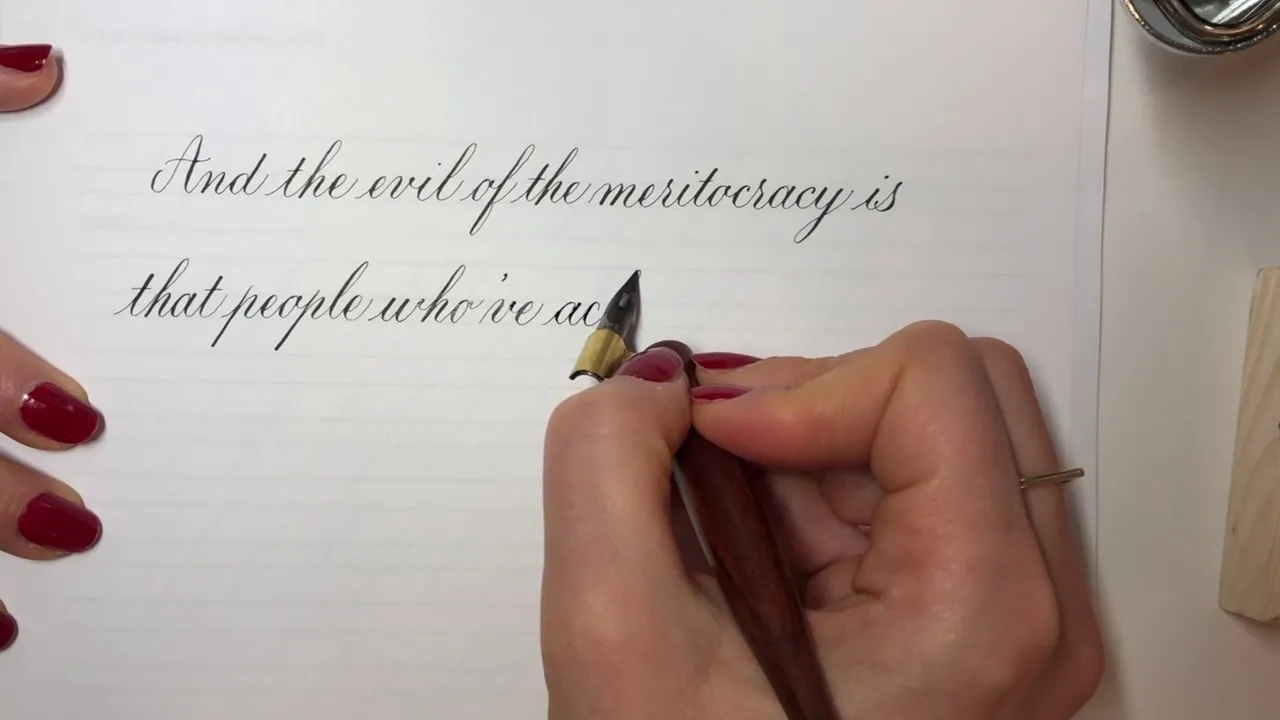 And the evil of the meritocracy is
that people who've ac